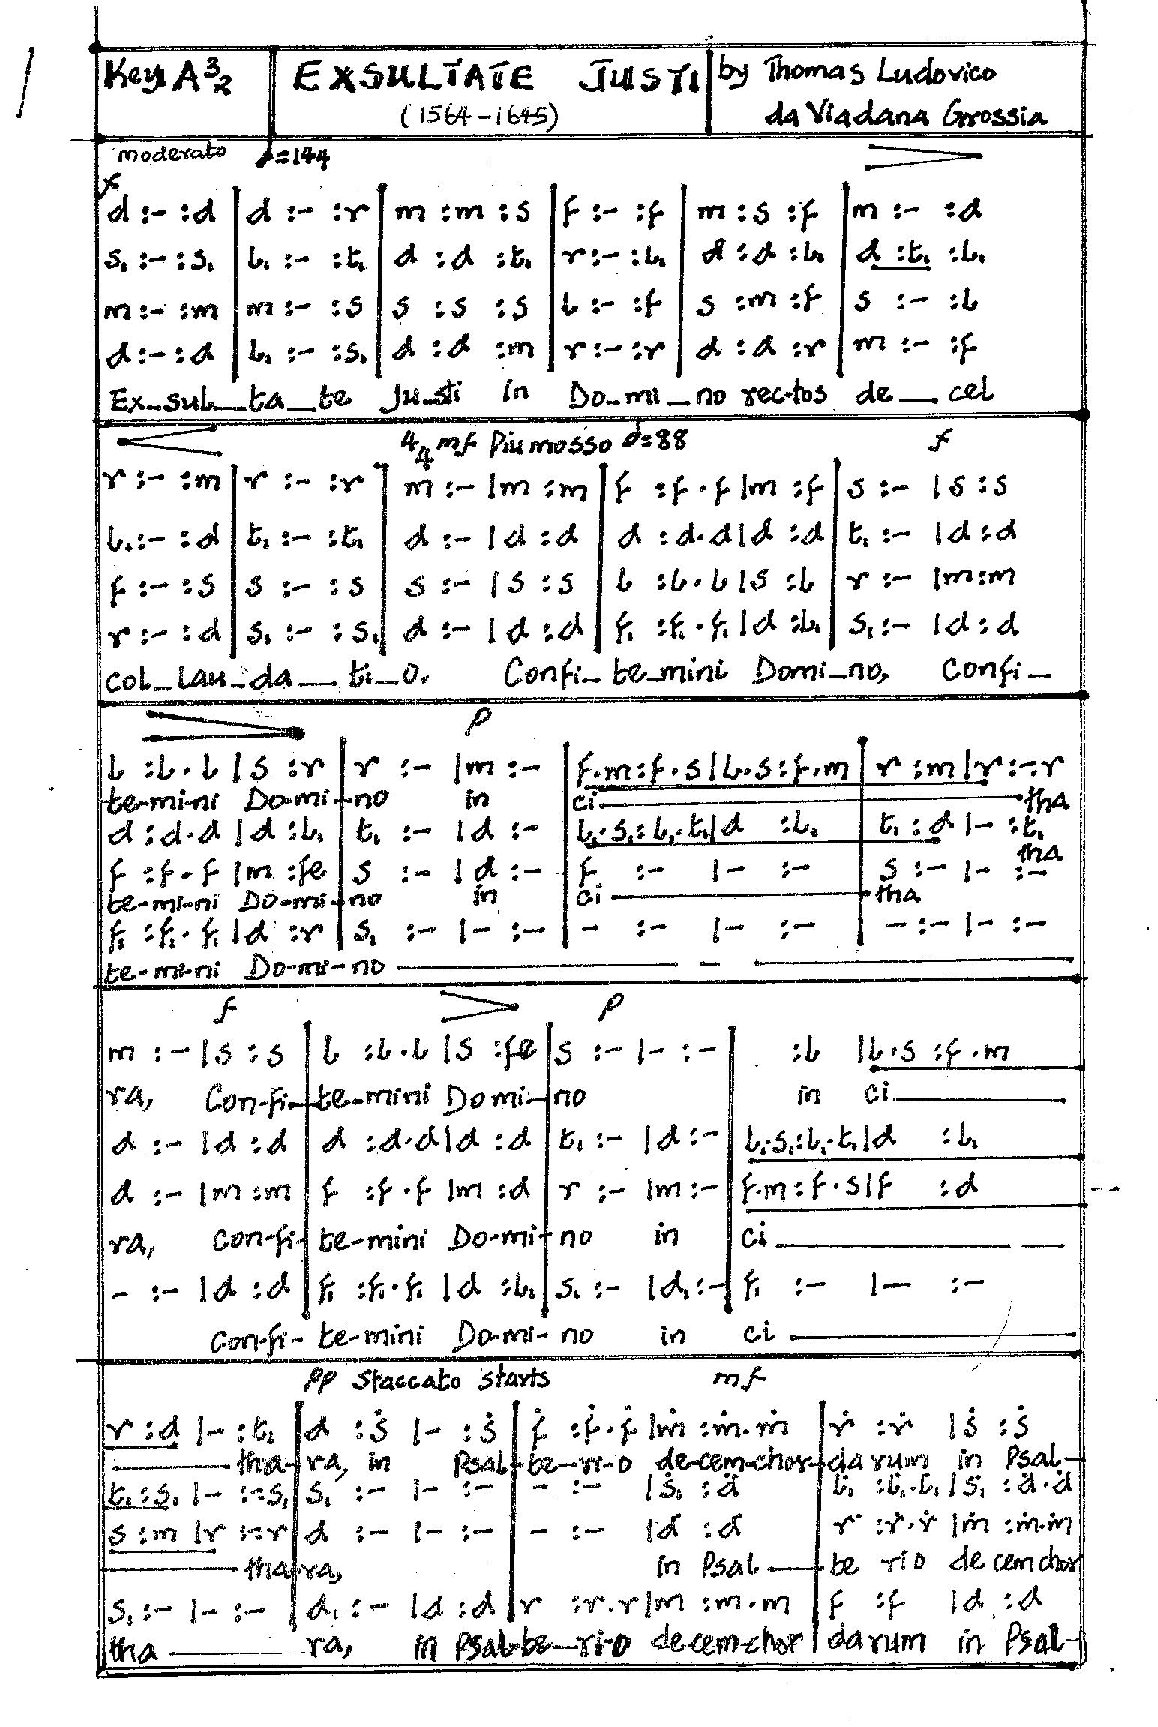 1
Key A 3/2 EXSULTATE JUSTI by Thomas Ludovico
(1564-1645) da Viadana Grossia
moderato =144
f
d :- :d | d :- :r | m :m :s | f :- :f | m :s :f | m :- :d
s, :- :s, | l, :- :t, | d :d :t, | r :- :l, | d :d :l, | d :t, :l,
m :- :m | m :- :s | s :s :s | l :- :f | s :m :f | s :- :l
d :- :d | l, :- :s, | d :d :m | r :- :r | d :d :r | m :- :f
Ex_sul_ta_te Ju_sti in Do_mi_no rec-tos de_cel
4/4 mf Piu mosso d=88 f
r :- :m | r :- :r | m :- |m :m | f :f.f |m :f | s :- |s :s
l, :- :d | t, :- :t, | d :- |d :d | d :d.d |d :d | t, :- |d :d
f :- :s | s :- :s | s :- |s :s | l :l.l |s :l | r :- |m :m
r :- :d | s, :- :s, | d :- |d :d | f, :f,.f, |d :l, | s, :- |d :d
col_lau_da_ti_o. Confi_te_mini Domi_no, Confi_
p
l :l.l |s :r | r :- |m :- | f.m :f.s |l.s :f.m | r :m |r :-.r
te-mi-ni Do-mi-no in ci tha
d :d.d |d :l, | t, :- |d :- | l,.s, :l,.t, |d :l, | t, :d |- :t,
tha
f :f.f |m :fe | s :- |d :- | f :- |- :- | s :- |- :-
te-mi-ni Do-mi-no in ci tha
f, :f,.f, |d :r | s, :- |- :- | - :- |- :- | - :- |- :-
te-mi-ni Do-mi-no
f p
m :- |s :s | l :l.l |s :fe | s :- |- :- | :l |l.s :f.m
ra, Con-fi-te-mini Domi-no in ci
d :- |d :d | d :d.d |d :d | t, :- |d :- | l,.s, :l,.t, |d :l,
d :- |m :m | f :f.f |m :d | r :- |m :- | f.m :f.s |f :d
ra, Con-fi-te-mini Do-mi-no in ci
- :- |d :d | f, :f,.f, |d :l, | s, :- |d, :- | f, :- |- :-
Con-fi-te-mini Do-mi-no in ci
pp Staccato starts mf
r :d |- :t, | d :ṡ |- :ṡ | ḟ :ḟ.ḟ |ṁ :ṁ.ṁ | ṙ :ṙ |ṡ :ṡ
tha-ra, in Psal-te-ri-o de-cem-chor-darum in Psal-
t, :s, |- :-.s, | s, :- |- :- | - :- |ṡ, :ḋ | l, :l,.l, |s, :d.d
s :m |r :-.r | d :- |- :- | - :- |d :d | r :r.r |m :m.m
tha ra, in Psal te rio de cem chor
s, :- |- :- | d, :- |d :d | r :r.r |m :m.m | f :f |d :d
tha ra, in Psal-te-ri-o decemchor darum in Psal-